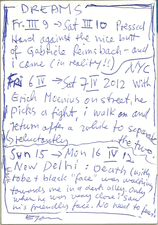 DREAMS
Fr. III 9 → Sat III 10 Pressed
Hard against the nice butt
of Gabriele Reimbach - and
i came (in reality!!)
NYC
Fri 6 IV → Sat 7 IV 2012 With
Erich Moevius on street, he
picks a fight, i walk on and
return after a while to separate
the two
reluctantly
Sun 15 → Mon 16 IV 12
New Delhi : Death (with
robe + black 'face' was walking
towards me in a dark alley. Only
when he was very close i saw
his friendly face. No need to fear!